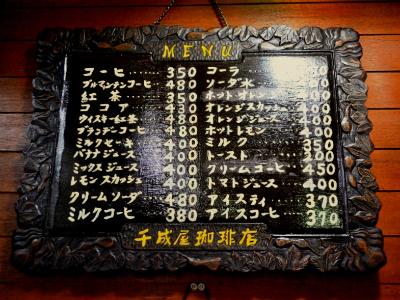 MENU
コーヒ 350
ブルマンテンコーヒ 480
紅茶 350
ココア 450
ウイスキー紅茶 480
ブランデンコーヒ 480
ミルクセーキ 400
バナナジュース 400
ミックスジュース 400
レモンスカッシュ 400
クリームソーダ 480
ミルクコーヒ 380
コーラ
ソーダ水
オレンジスカッシュ 400
オレンジジュース 400
ホットレモン 400
ミルク 350
トースト 200
クリームコーヒ 450
トマトジュース 400
アイスティ 370
アイスコーヒ 370
千成屋珈琲店